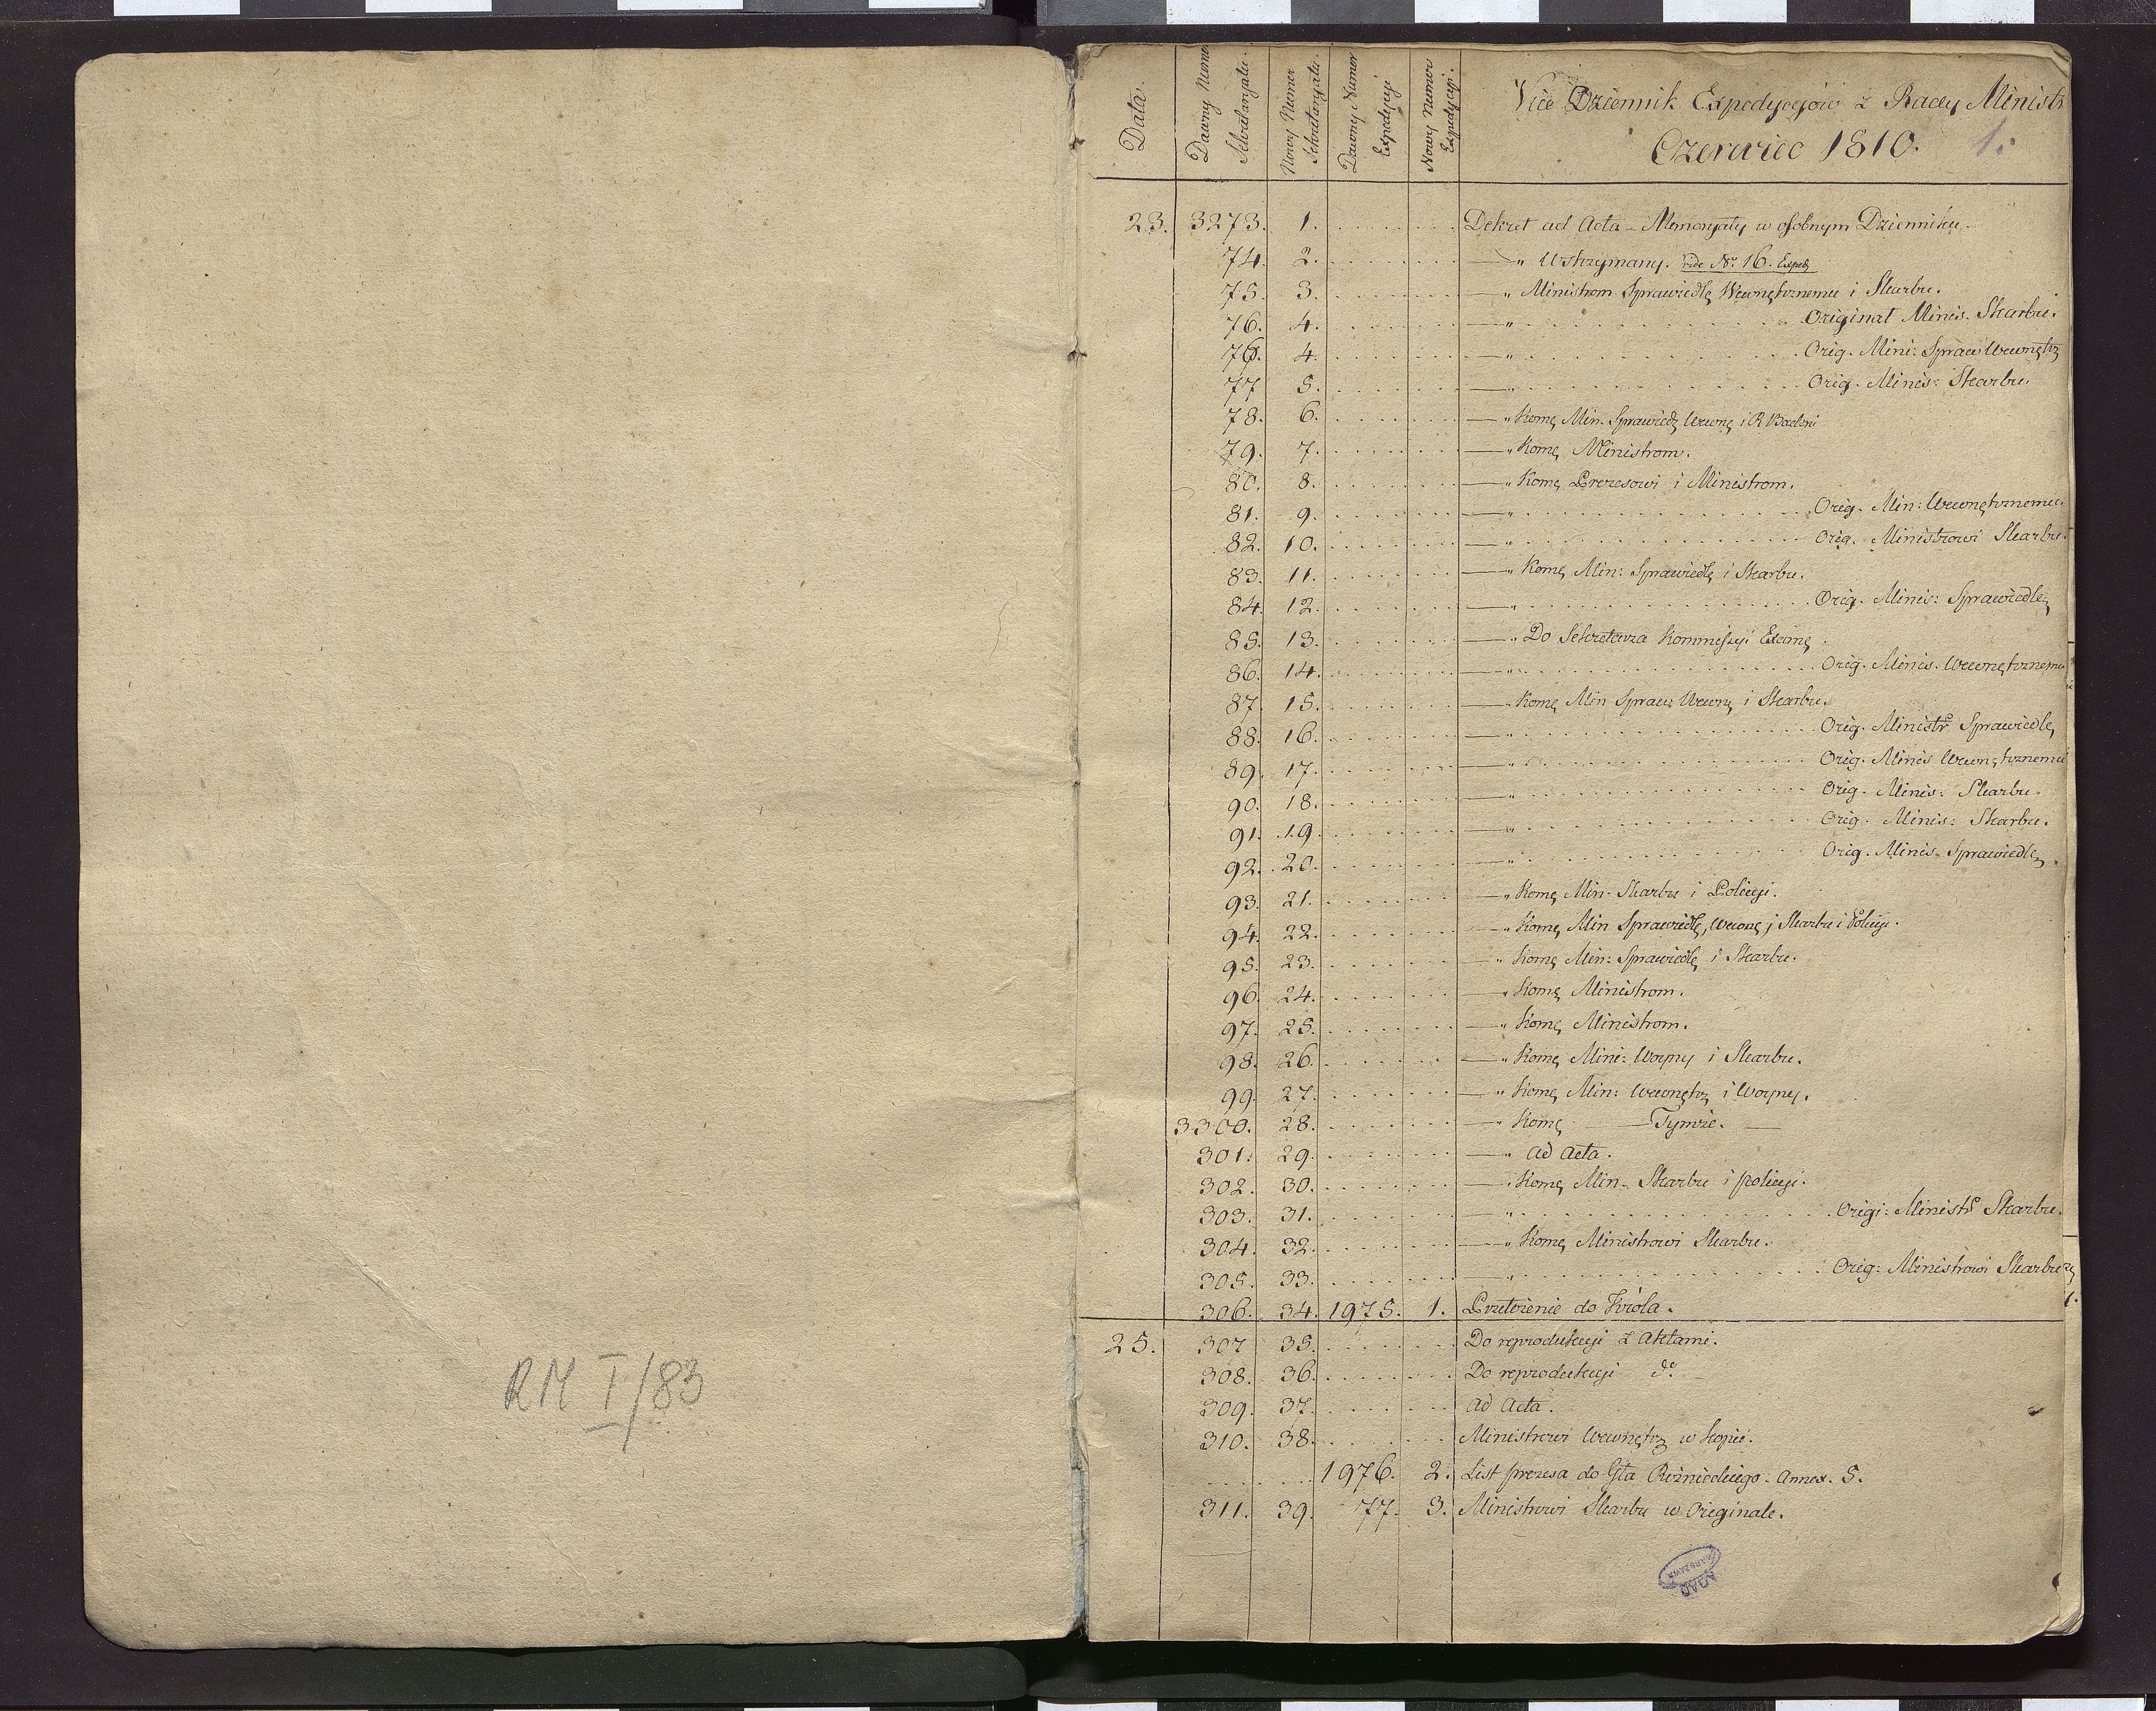 RM I/83
Data.
Dawny Nume
Sekretaryatu.
Nowy Numer
Sekretaryatu.
Dawny Numer
Expedycyi
Nowy Numer
Expedycyi.
Vice Dziennik Expedycyów z Rady Ministr
Czerwiec 1810. 1.
23. 3273. 1. Dekret ad Acta - Memoryały w osobnym Dzienniku.
74. 2. — " Wstrzymany. vide Nr. 16. Exped
75. 3. — " Ministrom Sprawiedlę Wewnętrznemu i Skarbu.
76. 4. — " Originał Minis. Skarbu.
76. 4. — " Orig. Mini: Spraw Wewnętrz
77 5. — " Orig. Minis: Skarbu.
78. 6. — " Komę Min. Sprawiedz Wewnę i R Badeni
79. 7. — " Komę Ministrom.
80. 8. — " Komę Prezesowi i Ministrom.
81. 9. — " Orig. Min: Wewnętrznemu.
82. 10. — " Orig. Ministrowi Skarbu.
83. 11. — " Komę Min: Sprawiedlę i Skarbu.
84. 12. — " Orig. Minis: Sprawiedlę
85. 13. — " Do Sekretarza Kommissyi Examę.
86. 14. — " Orig. Minis. Wewnętrznemu
87. 15. — " Komę Min Spraw: Wewnę i Skarbu.
88. 16. — " Orig. Ministr Sprawiedlę
89. 17. — " Orig. Minis Wewnętrznemu
90. 18. — " Orig. Minis: Skarbu.
91. 19. — " Orig. Minis: Skarbu.
92. 20. — " Orig. Minis. Sprawiedlę.
93. 21. — " Komę Min: Skarbu i Policyi.
94. 22. — " Komę Min Sprawiedlę, Wewnę, Skarbu i Policyi.
95. 23. — " Komę Min: Sprawiedlę i Skarbu.
96. 24. — " Komę Ministrom.
97. 25. — " Komę Ministrom.
98. 26. — " Komę Mini: Woyny i Skarbu.
99. 27. — " Komę Min: Wewnętrz i Woyny.
3300. 28. — " Komę — Tymże. —
301. 29. — " ad Acta.
302. 30. — " Komę Min. Skarbu i policyi.
303. 31. — " Origi: Ministr Skarbu.
304. 32. — " Komę Ministrowi Skarbu.
305. 33. — " Orig: Ministrowi Skarbu
306. 34. 1975. 1. Przełożenie do Króla.
25. 307 35. Do reprodukcyi z Aktami.
308. 36. Do reprodukcyi do
309. 37. ad Acta.
310. 38. Ministrowi Wewnętrz w kopii.
1976. 2. List prezesa do Gła Rożnieckiego. Annex. 5.
311. 39. 77. 3. Ministrowi Skarbu w Originale.
AGAD
WARSZAWA